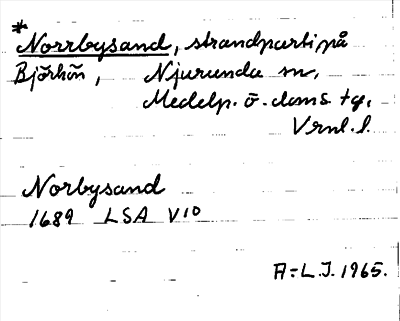 *
Norrbysand, strandparti på
Björkön, Njurunda sn,
Medelp. ö. doms. tg.
Vrnl. l.
Norbysand
1689 LSA V10
A-L.J. 1965.